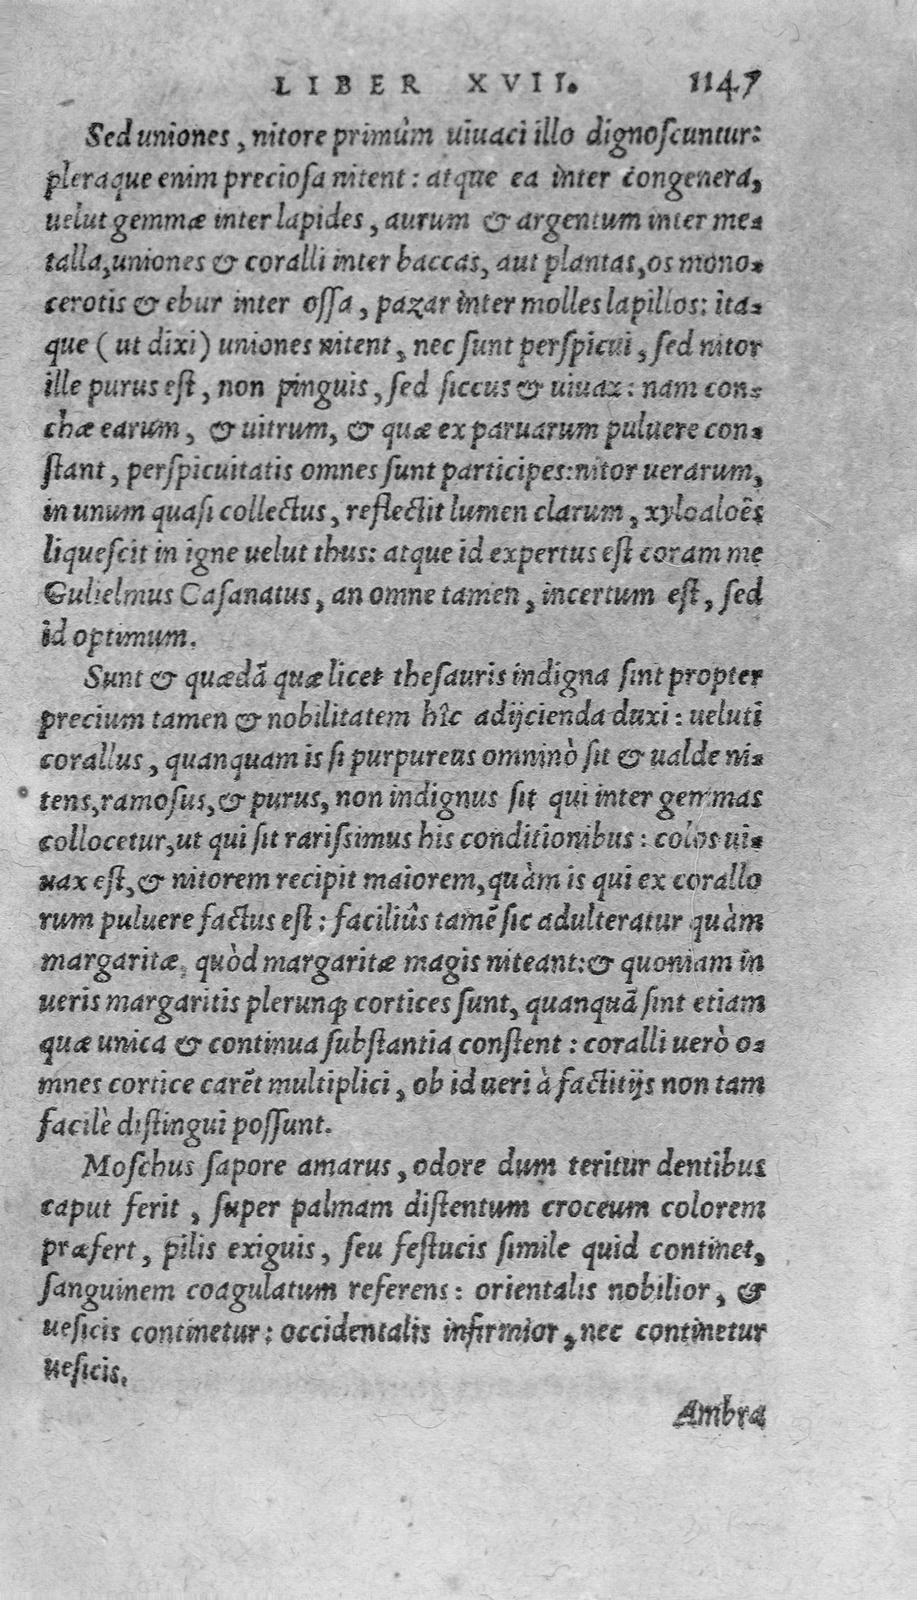 LIBER XVII. 1147
Sed uniones, nitore primûm uiuaci illo dignoſcuntur:
pleraque enim precioſa nitent: atque ea inter congenera,
uelut gemmæ inter lapides, aurum & argentum inter me-
talla, uniones & coralli inter baccas, aut plantas, os mono-
cerotis & ebur inter oſſa, pazar inter molles lapillos: ita-
que (ut dixi) uniones nitent, nec ſunt perſpicui, ſed nitor
ille purus eſt, non pinguis, ſed ſiccus & uiuax: nam con-
chæ earum, & uitrum, & quæ ex paruarum puluere con-
ſtant, perſpicuitatis omnes ſunt participes: nitor uerarum,
in unum quaſi collectus, reflectit lumen clarum, xyloaloês
liqueſcit in igne uelut thus: atque id expertus eſt coram me
Gulielmus Caſanatus, an omne tamen, incertum eſt, ſed
id optimum.
Sunt & quædā quæ licet theſauris indigna ſint propter
precium tamen & nobilitatem hîc adijcienda duxi: ueluti
corallus, quanquam is ſi purpureus omninò ſit & ualde ni-
tens, ramoſus, & purus, non indignus ſit qui inter gemmas
collocetur, ut qui ſit rariſsimus his conditionibus: colos ui-
uax eſt, & nitorem recipit maiorem, quàm is qui ex corallo
rum puluere factus eſt: faciliûs tamē ſic adulteratur quàm
margaritæ, quòd margaritæ magis niteant: & quoniam in
ueris margaritis plerunq; cortices ſunt, quanquā ſint etiam
quæ unica & continua ſubſtantia conſtent: coralli uerò o-
mnes cortice carēt multiplici, ob id ueri à factitijs non tam
facilè diſtingui poſſunt.
Moſchus ſapore amarus, odore dum teritur dentibus
caput ferit, ſuper palmam diſtentum croceum colorem
præfert, pilis exiguis, ſeu feſtucis ſimile quid continet,
ſanguinem coagulatum referens: orientalis nobilior, &
ueſicis continetur: occidentalis infirmior, nec continetur
ueſicis.
Ambra